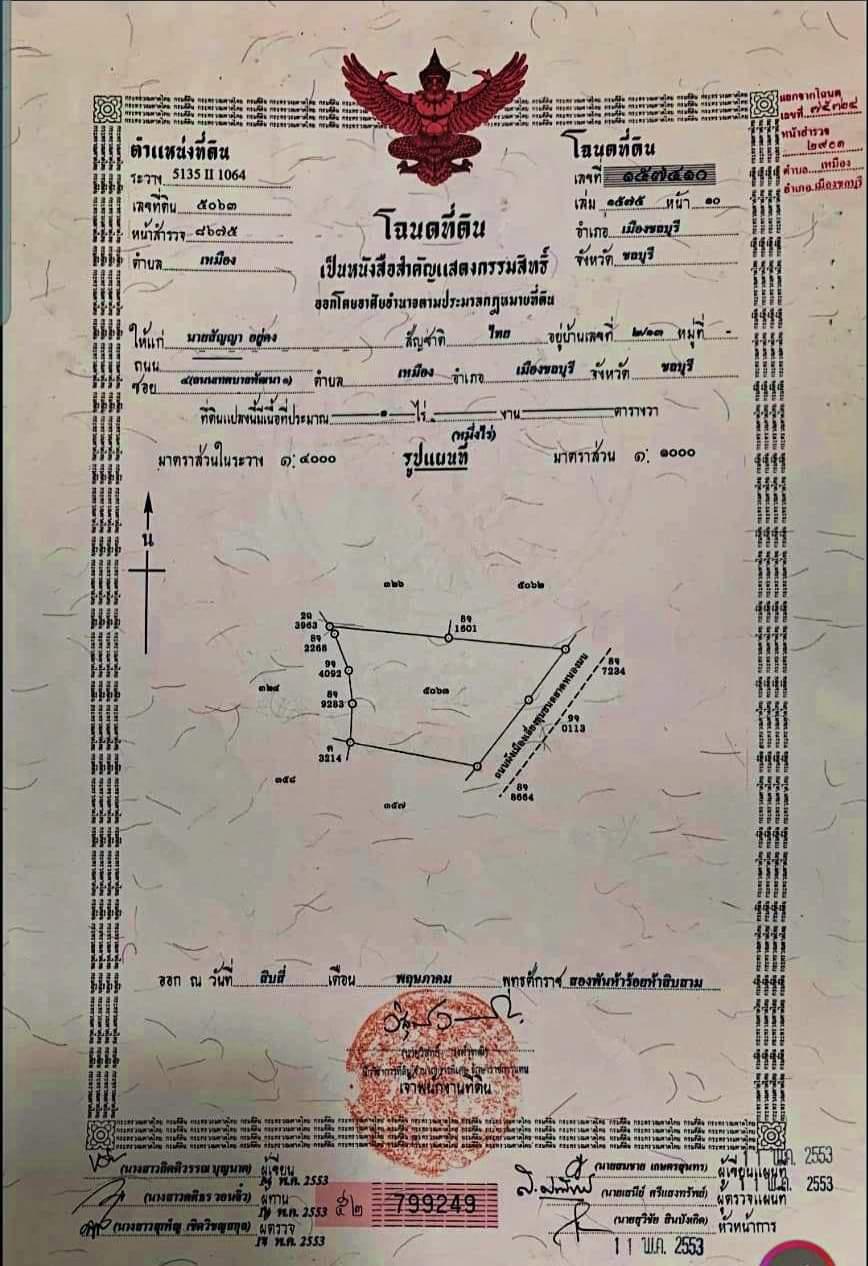 ตำแหน่งที่ดิน
ระวาง 5135 II 1064
เลขที่ดิน ๕๐๖๓
หน้าสำรวจ ๘๖๗๕
ตำบล เหมือง
โฉนดที่ดิน
เลขที่ ๑๕๗๔๑๐
เล่ม ๑๕๗๕ หน้า ๑๐
อำเภอ เมืองชลบุรี
จังหวัด ชลบุรี
แยกจากโฉนด
เลขที่ ๗๕๗๒๔
หน้าสำรวจ
๒๙๐๓
ตำบล เหมือง
อำเภอ เมืองชลบุรี
โฉนดที่ดิน
เป็นหนังสือสำคัญแสดงกรรมสิทธิ์
ออกโดยอาศัยอำนาจตามประมวลกฎหมายที่ดิน
ให้แก่ นายสัญญา อยู่คง สัญชาติ ไทย อยู่บ้านเลขที่ ๒/๑๓ หมู่ที่ -
ถนน
ซอย ๔(ถนนเทศบาลพัฒนา ๑) ตำบล เหมือง อำเภอ เมืองชลบุรี จังหวัด ชลบุรี
ที่ดินแปลงนี้มีเนื้อที่ประมาณ ๑ ไร่ งาน ตารางวา
(หนึ่งไร่)
มาตราส่วนในระวาง ๑: ๔๐๐๐ รูปแผนที่ มาตราส่วน ๑: ๑๐๐๐
น
๓๒๖ ๕๐๖๒
2ฉ
3963
8จ
1601
8จ
2268
9จ
4092
8จ
9283
ค
3214
๓๒๔
๕๐๖๓
8จ
7234
9จ
0113
8จ
8664
ถนนผังเมืองเลี่ยงชุมชนตลาดหนองมน
๓๕๘
๓๕๗
ออก ณ วันที่ สิบสี่ เดือน พฤษภาคม พุทธศักราช สองพันห้าร้อยห้าสิบสาม
เจ้าพนักงานที่ดิน
ผู้เขียน
๑๔ พ.ค. 2553
ผู้ทาน
๑๔ พ.ค. 2553
ผู้ตรวจ
๑๔ พ.ค. 2553
๕๒ 799249
(นายสมชาย เกษตรสุนทร) ผู้เขียนแผนที่
11 พ.ค. 2553
(นายเสนีย์ ศรีแสงทรัพย์) ผู้ตรวจแผนที่
11 พ.ค. 2553
(นายสุวิชัย สินบังเกิด) หัวหน้าการ
11 พ.ค. 2553